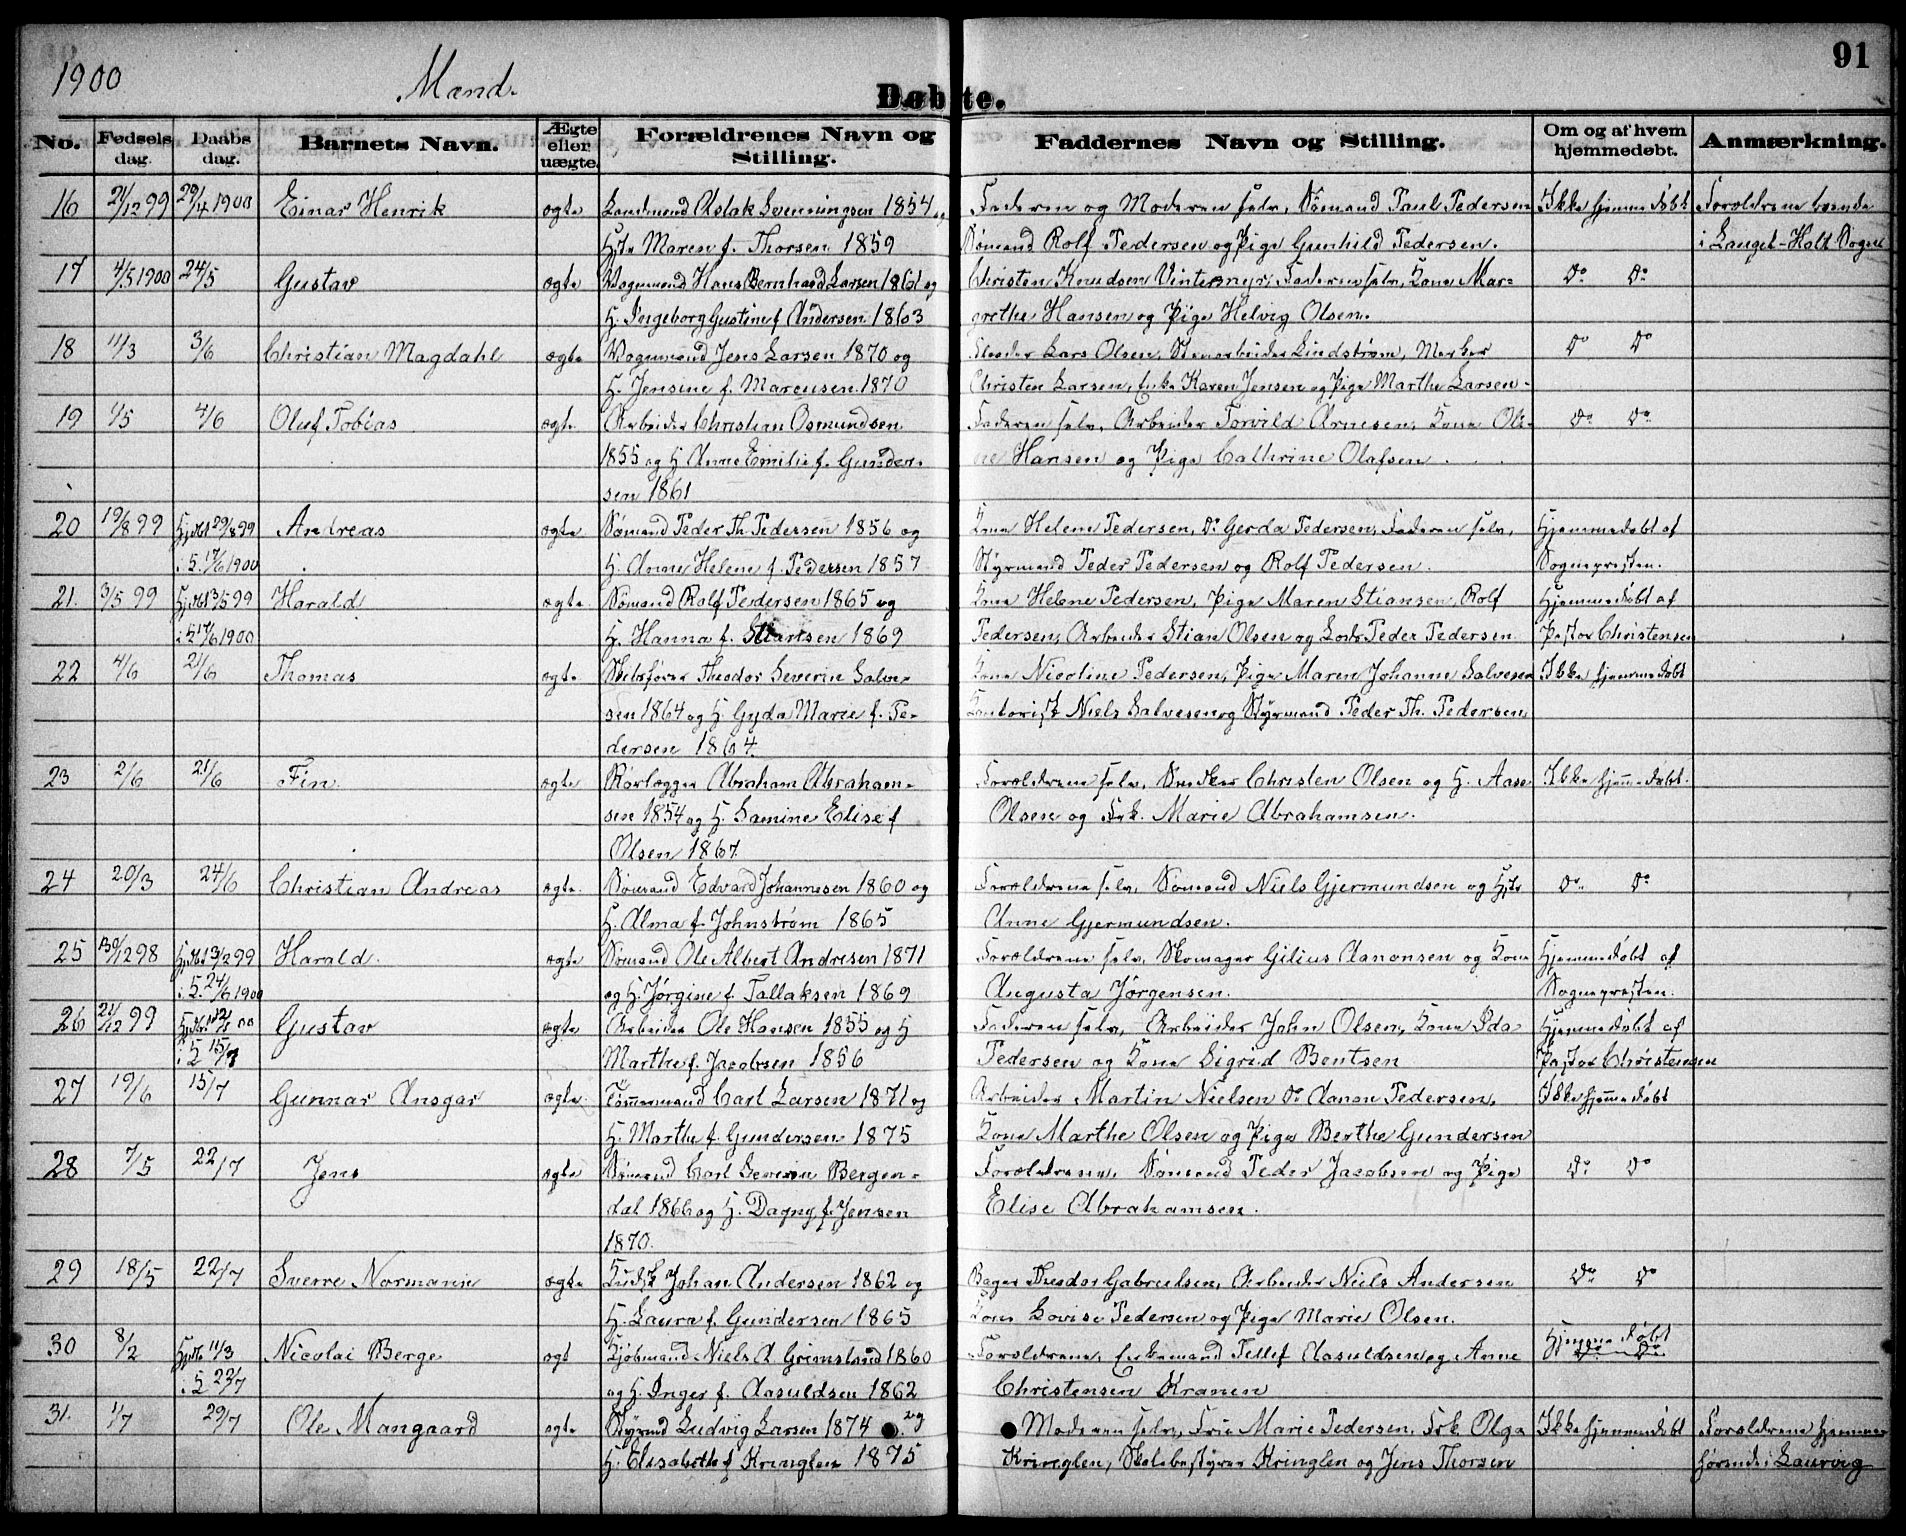 1900
Mand.
Døbte.
91
No.
Fødselsdag.
Daabsdag.
Barnets Navn.
Ægte eller uægte.
Forældrenes Navn og Stilling.
Faddernes Navn og Stilling.
Om og af hvem hjemmedøbt.
Anmærkning.
16 21/12 99 29/4 1900 Einar Henrik ægte Landmand Aslak Svenningsen 1854 og Faderen og Moderen selv, Sømand Paul Pedersen Ikke hjemmedøbt Forældrene boende
Hstr Maren f. Thorsen 1859 Sømand Rolf Pedersen og Pige Gunhild Pedersen. i Langet-Holt Sogn
17 4/5 1900 24/5 Gustav ægte Vognmand Hans Bernhard Larsen 1861 og Christen Knudsen Vintermyr, Faderen selv, Kone Mar- Do Do
H. Ingeborg Gustine f. Andersen 1863 grethe Hansen og Pige Helvig Olsen.
18 11/3 3/6 Christian Magdahl ægte Vognmand Jens Larsen 1870 og Lars Olsen, Stenarbeider Lindstrøm, Do Do
H. Jensine f. Marcusen 1870 Christen Larsen, Enke Karen Jensen og Pige Marthe Larsen-
19 1/5 4/6 Oluf Tobias ægte Arbeider Christian Osmundsen Faderen selv, Arbeider Torvild Arnesen, Kone Ole- Do Do
1855 og H Anne Emilie f. Gunder- ne Hansen og Pige Cathrine Olafsen.
sen 1861
20 19/8 99 Hjdbt 29/8 99 Andreas ægte Sømand Peder Th. Pedersen 1856 og Kone Helene Pedersen, Do Gerda Pedersen, Faderen selv, Hjemmedøbt af
i 5. 17/6 1900 H. Anne Helene f. Pedersen 1857 Styrmand Peder Pedersen og Rolf Pedersen. Sognepresten.
21. 3/5 99 Hjdbt 3/5 99 Harald ægte. Sømand Rolf Pedersen 1865 og Kone Helene Pedersen, Pige Maren Stiansen, Rolf Hjemmedøbt af
i 5 17/6 1900 H. Hanna f. 1869 Pedersen, Arbeider Stian Olsen og Lods Peder Pedersen Pastor Christensen
22 4/6 21/6 Thomas ægte Skibsfører Theodor Severin Salve- Kone Nicoline Pedersen, Pige Maren Johanne Salvesen Ikke hjemmedøbt
sen 1864 og H Gyda Marie f. Pe- Kontorist Niels Salvesen og Styrmand Peder Th. Pedersen
dersen 1864.
23 2/6 21/6 Fin ægte Rørlægger Abraham Abraham- Forældrene selv, Snedker Christen Olsen og H. Aase Ikke hjemmedøbt.
sen 1854 og H. Samine Elise f Olsen og Frk. Marie Abrahamsen.
Olsen 1867.
24 20/3 24/6 Christian Andreas ægte. Sømand Edvard Johannesen 1860 og Forældrene selv, Sømand Niels Gjermundsen og Hstr Do Do
H. Alma f. Johnstrøm 1865 Anne Gjermundsen.
25 30/12 98 Hjdbt 13/2 99 Harald. ægte Sømand Ole Albert Andresen 1871 Forældrene selv, Skomager Gilius Aanonsen og Kone Hjemmedøbt af
i 5. 24/6 1900 og H. Jørgine f. Tallaksen 1869 Augusta Jørgensen. Sognepresten.
26 21/12 99 Gustav ægte Arbeider Ole Hansen 1855 og H Faderen selv, Arbeider John Olsen, Kone Ida Hjemmedøbt af
i 5 15/7 Marthe f. Jacobsen 1856 Pedersen og Kone Sigrid Bentsen Pastor Christensen
27 19/6 15/7 Gunnar Ansgar ægte Tømmermand Carl Larsen 1871 og Arbeider Martin Nielsen Do Aanon Pedersen, Ikke hjemmedøbt
H. Marthe f. Gundersen 1875 Kone Marthe Olsen og Pige Berthe Gundersen
28 7/5 22/7 Jens ægte Sømand Carl Severin Bergen- Forældrene, Sømand Peder Jacobsen og Pige Do Do
dal 1866 og H. Dagny f. Jensen Elise Abrahamsen.
1870.
29 18/5 22/7 Sverre Normann ægte Johan Andersen 1862 og Bager Theodor Gabrielsen, Arbeider Niels Andersen Do Do
H. Laura f. Gundersen 1865 Kone Lovise Pedersen og Pige Marie Olsen.
30 8/2 Hjdb 11/3 Nicolai Berge ægt Kjøbmand Niels A Grimsland 1860 Forældrene, Tellef Aasuldsen og Anne Hjemmedøbt
i 5 22/7 og H. Inger f. Aasuldsen 1862 Christensen Kranen Do Do
31. 1/7 29/7 Ole Mangaard ægte Styrmd Ludvig Larsen 1874 og Moderen selv, Frue Marie Pedersen, Frk Olga Ikke hjemmedøbt Forældrene hjemme-
H. Elisabeth f Kringlen 1875 Kringlen, Skolebestyrer Kringlen og Jens Thorsen hørende i Laurvig